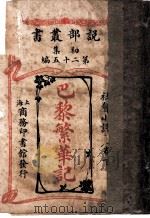 說部叢書
初集
第二十五編
社會小說
巴黎繁華記
上海
商務印書館發行